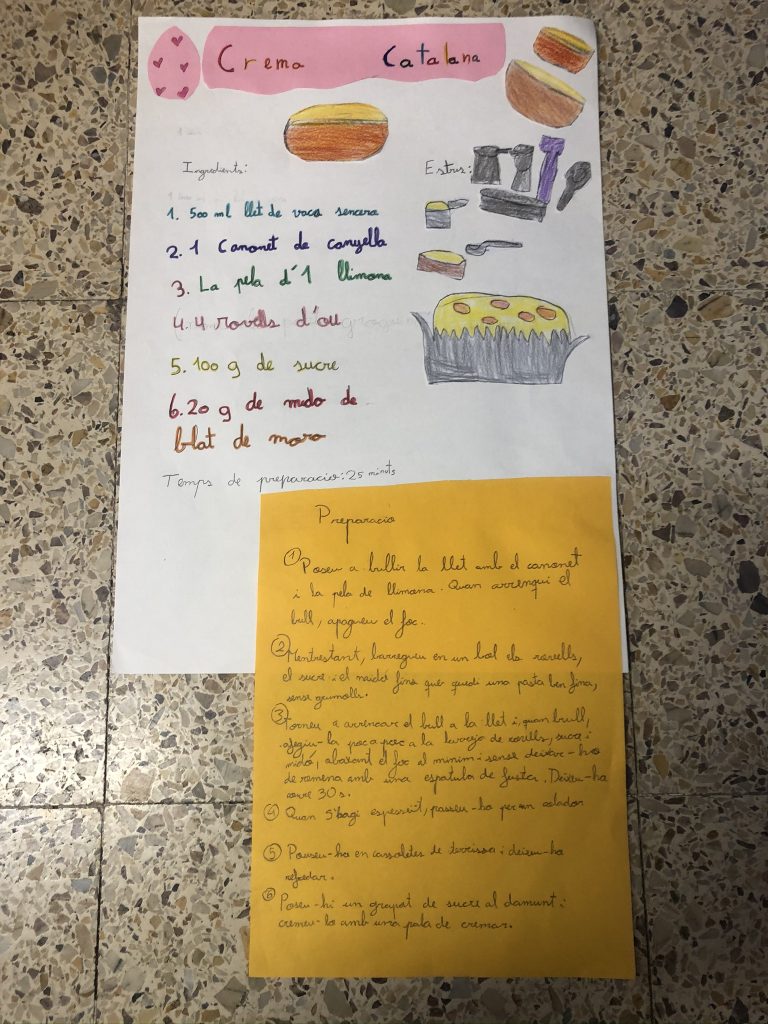 Crema Catalana
Ingredients:
Estris:
1. 500 ml llet de vaca sencera
2. 1 Canonet de canyella
3. La pela d'1 llimona
4. 4 rovells d'ou
5. 100 g de sucre
6. 20 g de mido de
blat de moro
Temps de preparacio: 25 minuts
Preparacio
1 Poseu a bullir la llet amb el canonet
i la pela de llimona. Quan arrenqui el
bull, apagueu el foc.
2 Mentrestant, barregeu en un bol els rovells,
el sucre i el midó fins que quedi una pasta ben fina,
sense grumolls.
3 Torneu a arrencar el bull a la llet i, quan bull,
afegiu-la poc a poc a la barreja de rovells, sucre i
midó, abaixant el foc al minim i sense deixar-ho
de remena amb una espatula de fusta. Deixeu-ho
coure 30 s.
4 Quan s'hagi espesseït, passeu-ho per un colador
5 Poseu-ho en cassoletes de terrissa i deixeu-ho
refredar.
6 Poseu-hi un grapat de sucre al damunt i
cremeu-lo amb una pala de cremar.